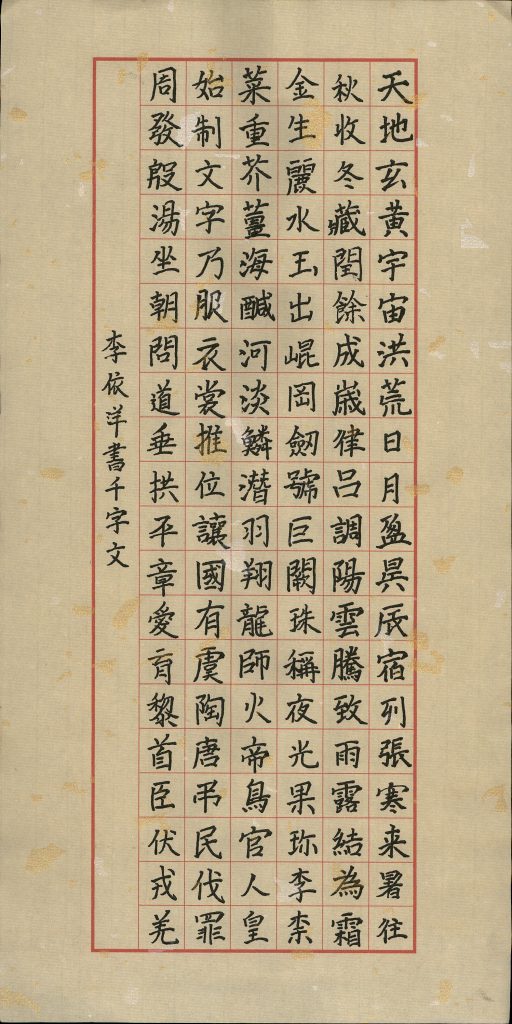 天地玄黃宇宙洪荒日月盈昃辰宿列張寒来暑往
秋收冬藏閏餘成歲律吕調陽雲騰致雨露結為霜
金生麗水玉出崐岡劒號巨闕珠稱夜光果珎李柰
菜重芥薑海醎河淡鱗潛羽翔龍師火帝鳥官人皇
始制文字乃服衣裳推位讓國有虞陶唐弔民伐罪
周發殷湯坐朝問道垂拱平章愛育黎首臣伏戎羌
李依洋書千字文